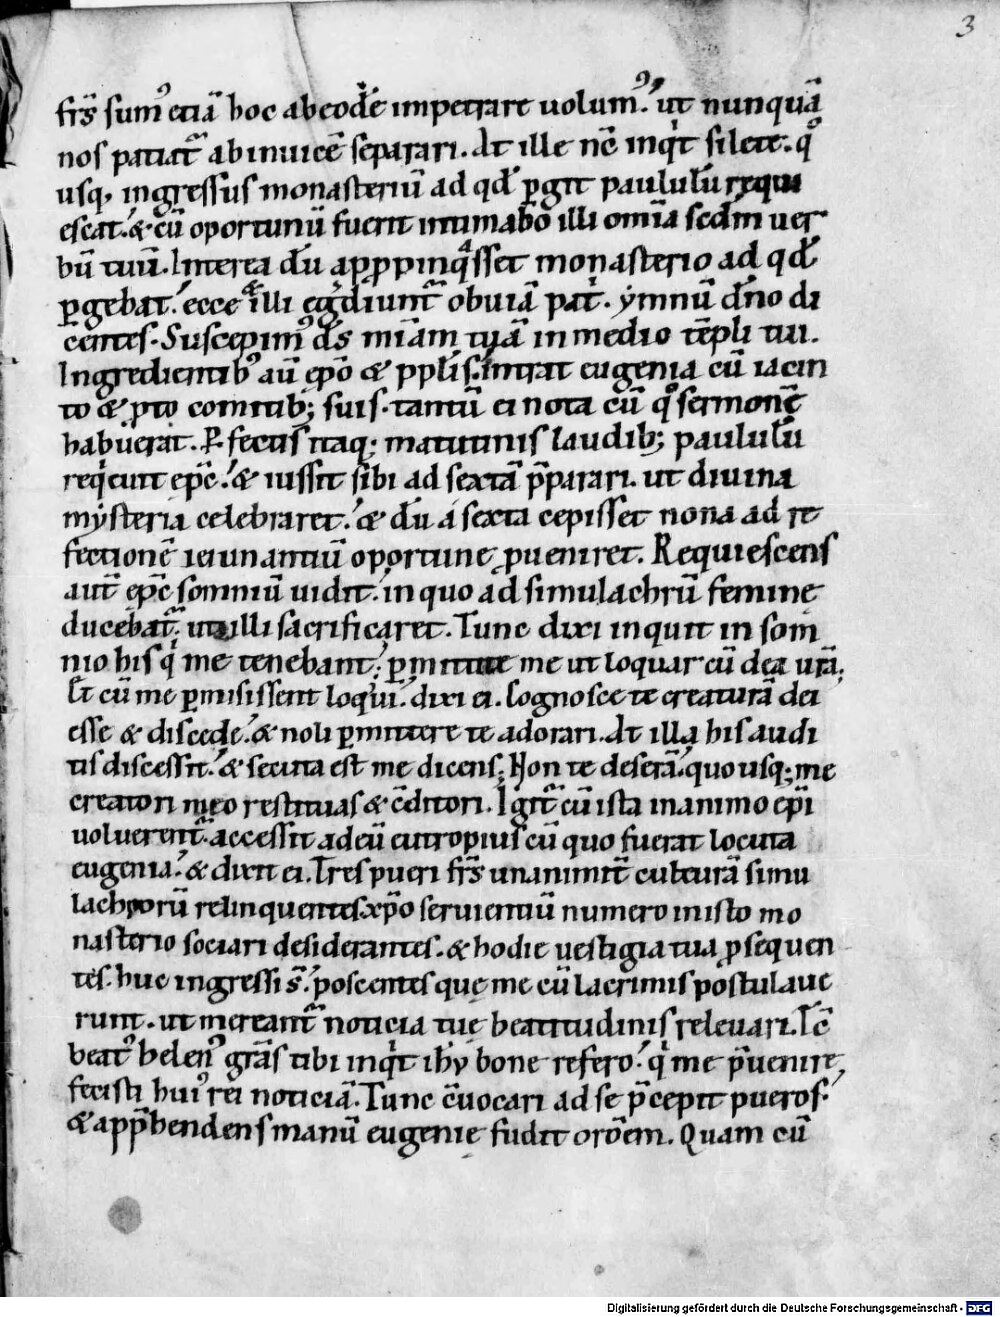 3
fr̄s sumꝰ etiā hoc ab eodē impetrare uolumꝰ. ut nunquā
nos patiat᷑ ab inuicē separari. At ille nc̄ inqͥt silete. qͦ
usq; ingressus monasteriū ad qd̄ ꝑgit paululū requi
escat. & cū oportunū fuerit intimabo illi om̄ia scdm uer
bū tuū. Interea dū appropinqᵃsset monasterio ad qd̄
ꝑgebat. ecce illi egrediunt᷑ obuiā pat᷑. ymnū dn̄o di
centes. Suscepimꝰ ds̄ mīam tuā in medio tēpli tui.
Ingredientibꝰ aū ep̄o & pplīs. intrat eugenia cū iacin
to & ꝓto comitib; suis. tantū ei nota cū qͦ sermonē
habuerat. Perfectis itaq; matutinis laudib; paululū
reqͥeuit ep̄c. & iussit sibi ad sextā p̄parari. ut diuina
mysteria celebraret. & dū a sexta cepisset nona ad re
fectionē ieiunantiū oportune ꝑueniret. Requiescens
aut̄ ep̄c somniū uidit. in quo ad simulachrū feminę
ducebat᷑. ut illi sacrificaret. Tunc dixi inquit in som
nio his qͥ me tenebant. ꝑmittite me ut loquar cū dea urā.
Et cū me ꝑmisissent loqui. dixi ei. Cognosce te creaturā dei
esse & discede. & noli ꝑmittere te adorari. At illa his audi
tis discessit. & secuta est me dicens; Non te deserā. quo usq; me
creatori meo restituas & c̄ditori. Igit᷑ cū ista in animo ep̄i
uoluerent᷑. accessit ad eū eutropius cū quo fuerat locuta
eugenia. & dixit ei. Tres pueri fr̄s unanimit̄ culturā simu
lachrorū relinquentes. xp̄o seruientiū numero in isto mo
nasterio sociari desiderantes. & hodie uestigia tua ꝓsequen
tes. huc ingressi s̄. poscentes que me cū lacrimis postulaue
runt. ut mereant᷑ noticia tuę beatitudinis releuari. Tc̄
beatꝰ helenꝰ grās tibi inqͥt ihu bone refero. qͥ me p̄uenire
fecisti huiꝰ rei noticiā. Tunc c̄uocari ad se p̄cepit pueros.
& app̄hendens manū eugenię fudit orōem. Quam cū
Digitalisierung gefördert durch die Deutsche Forschungsgemeinschaft - DFG